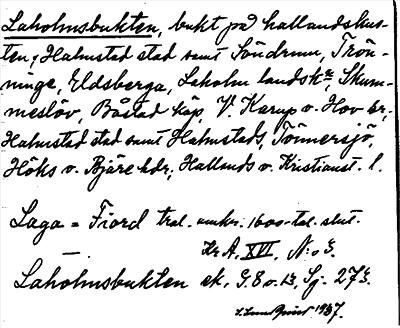 Laholmsbukten, bukt på hallandskus-
ten, Halmstad stad samt Söndrum, Trön-
ninge, Eldsberga, Laholm landskr, Skum-
meslöv, Båstad köp, V. Karup o. Hov sr;
Halmstad stad samt Halmstads, Tönnersjö,
Höks o. Bjäre hdr; Hallands o. Kristianst. l.
Laga = Fiord tral. omkr. 1600-tal. slut.
Kr A. XVI, N:o 3.
Laholmsbukten ek. G. 8 o. 13, Sj. 273.
1937.